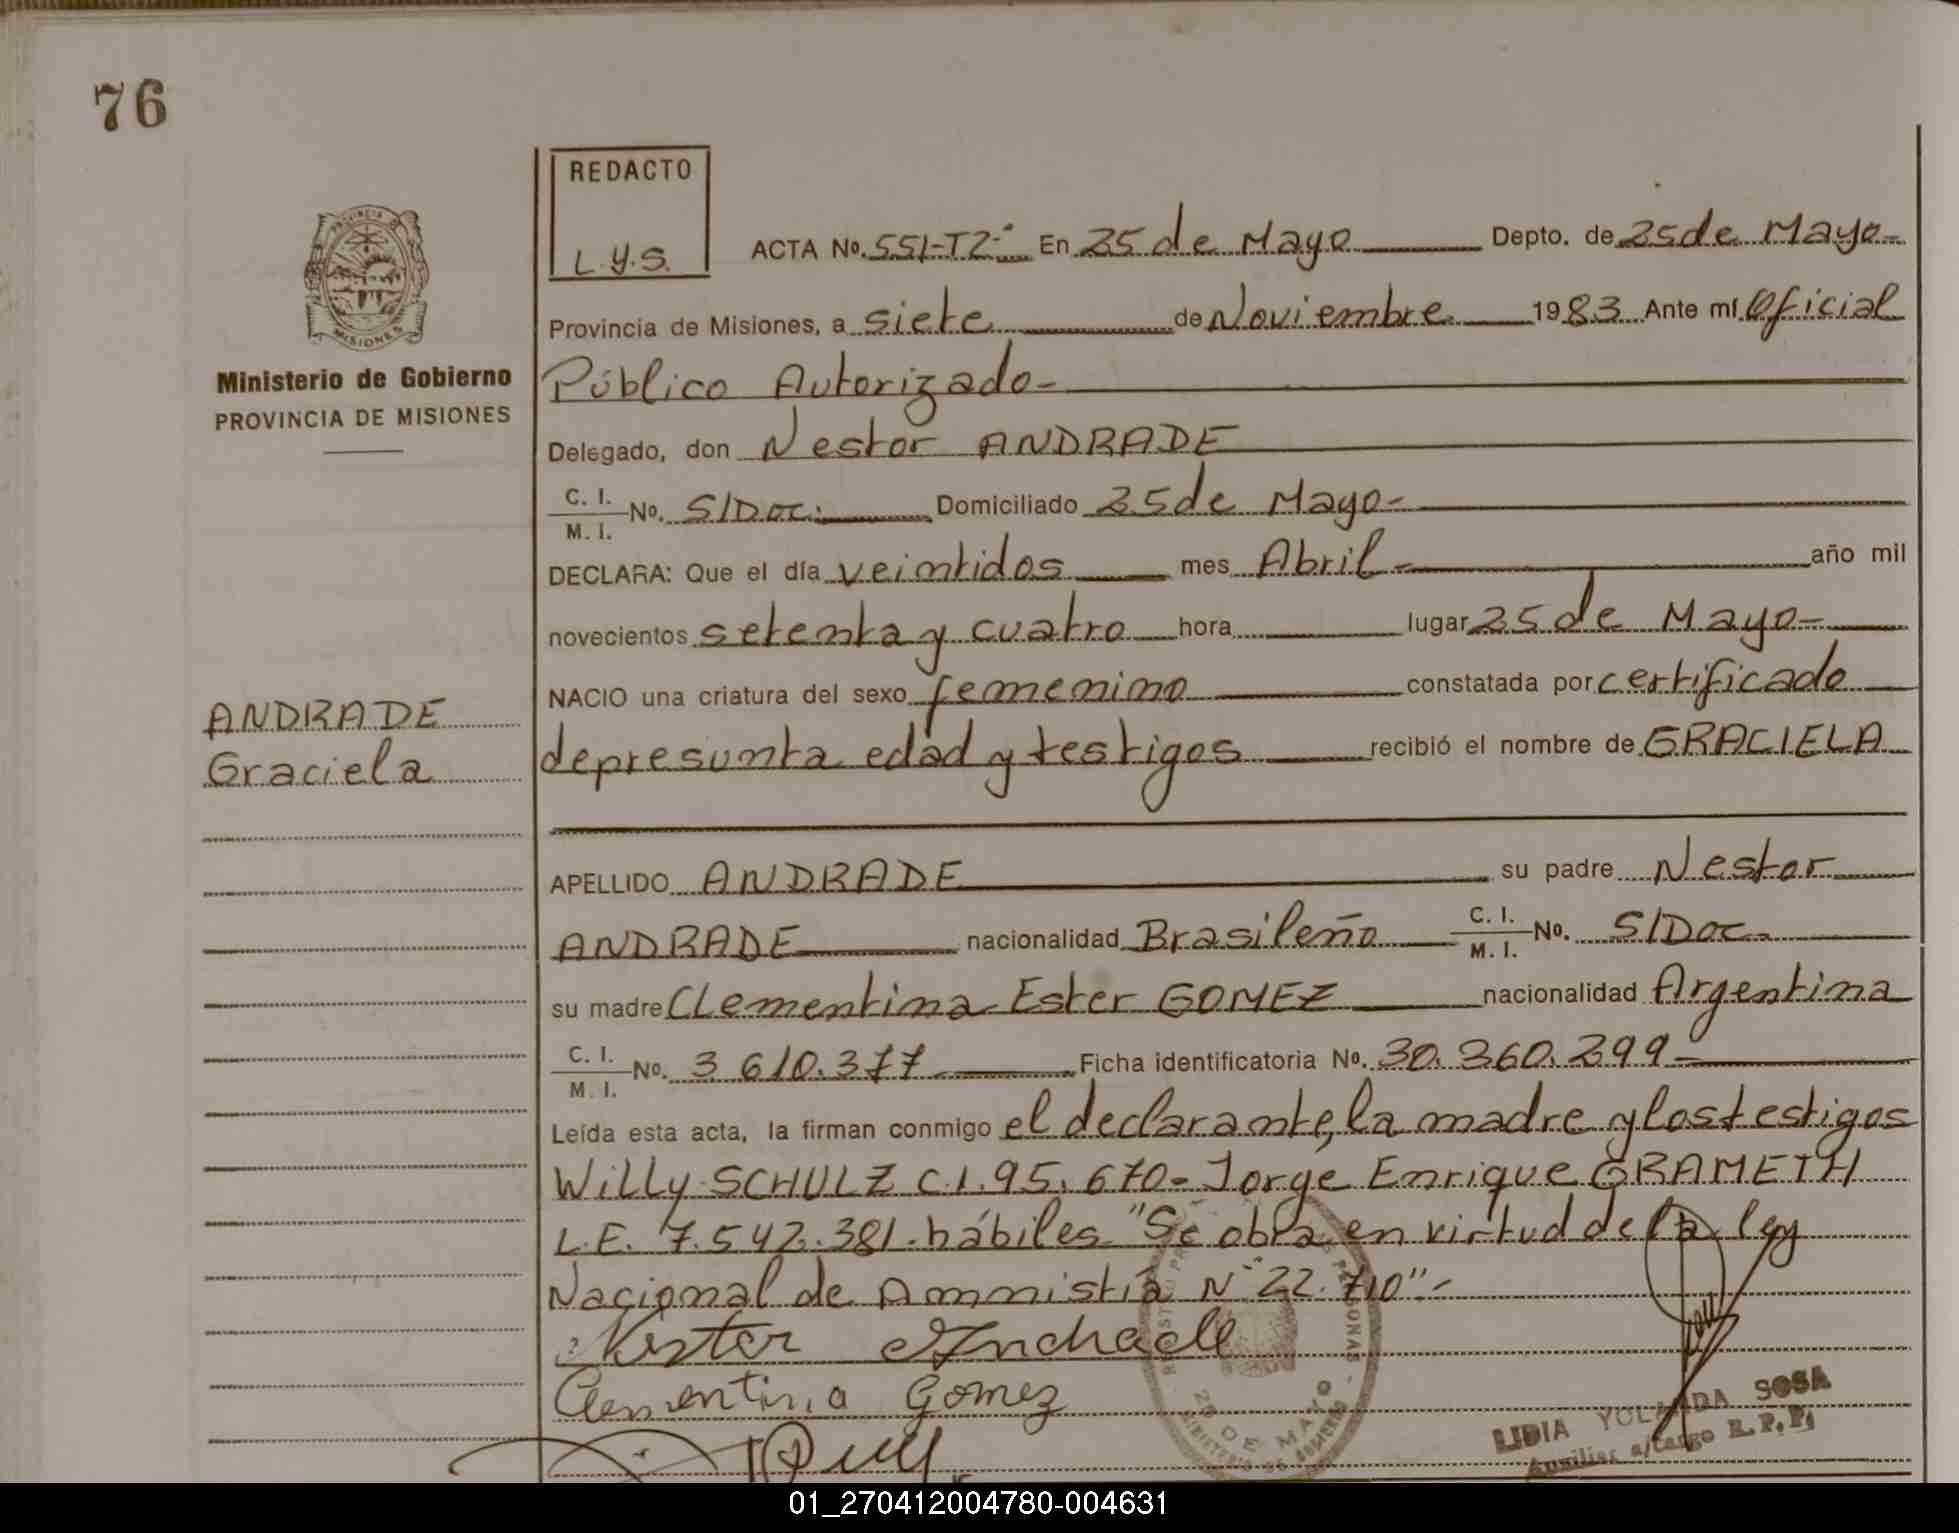 76
REDACTO
L.Y.S.
ACTA No. 551-T2-° En 25 de Mayo Depto. de 25 de Mayo-
Provincia de Misiones, a siete de Noviembre 1983 Ante mí Oficial
Público Autorizado-
Delegado, don Nestor ANDRADE
C. I.
M. I.
No. S/Doc. Domiciliado 25 de Mayo-
DECLARA: Que el día veintidos mes Abril- año mil
novecientos setenta y cuatro hora lugar 25 de Mayo-
NACIO una criatura del sexo femenino constatada por certificado
de presunta edad y testigos recibió el nombre de GRACIELA
APELLIDO ANDRADE su padre Nestor
ANDRADE nacionalidad Brasileño C. I. M. I. No. S/Doc.
su madre Clementina Ester GOMEZ nacionalidad Argentina
C. I.
M. I.
No. 3 610.377 Ficha identificatoria No. 30.360.299-
Leída esta acta, la firman conmigo el declarante, la madre y los testigos
Willy SCHULZ C.I. 95.670- Jorge Enrique GRAMETH
L.E. 7.542.381. hábiles "Se obra en virtud de la ley
Nacional de Ammistía N° 22.710"-
Nestor Andrade
Clementina Gomez
PROVINCIA DE
MISIONES
Ministerio de Gobierno
PROVINCIA DE MISIONES
ANDRADE
Graciela
25 DE MAYO
MINISTERIO DE GOBIERNO
LIDIA YOLANDA SOSA
Auxiliar a/cargo R.P.P.
01_270412004780-004631